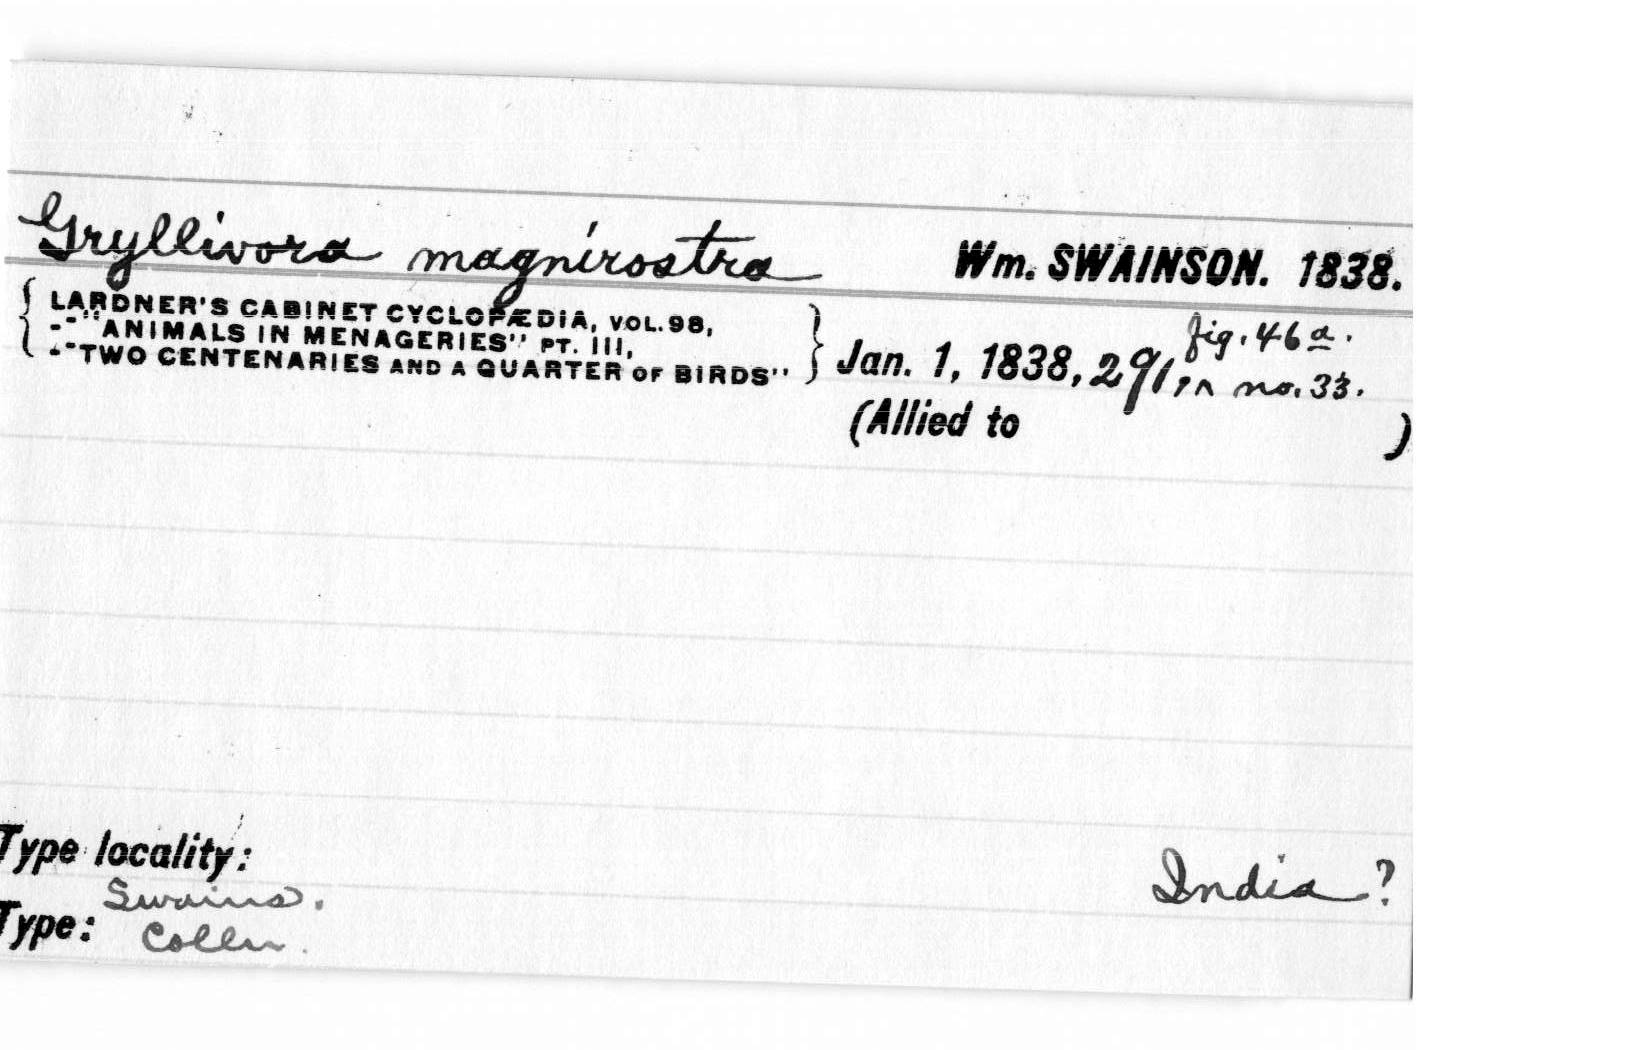 Gryllivora magnirostra Wm. SWAINSON. 1838.
{ LARDNER'S CABINET CYCLOPÆDIA, VOL. 98,
--"ANIMALS IN MENAGERIES" PT. III,
--"TWO CENTENARIES AND A QUARTER OF BIRDS" } Jan. 1, 1838, 291, fig. 46a.
no. 33.
(Allied to )
Type locality: India?
Swains.
Type: Colln.